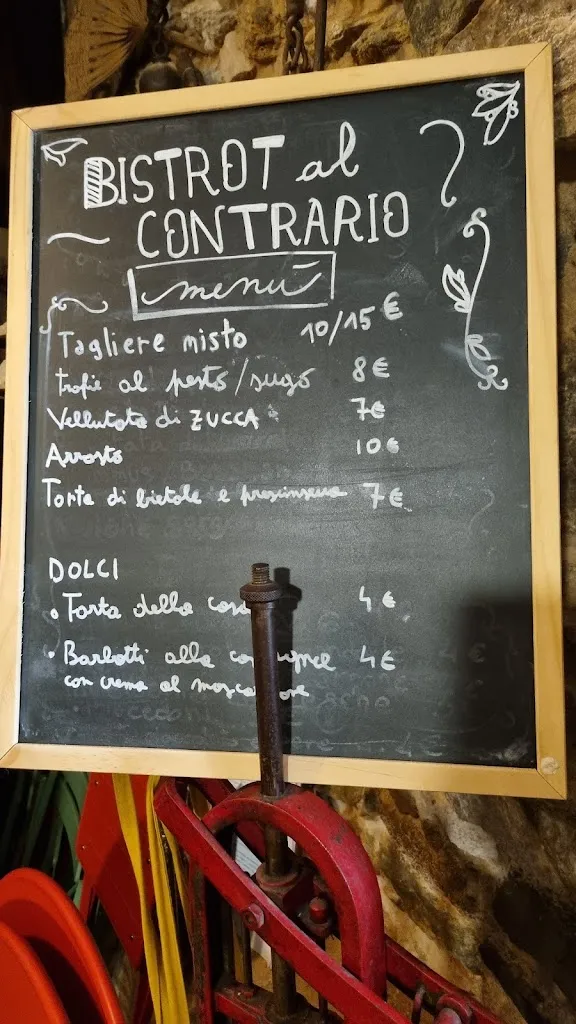 BISTROT al
CONTRARIO
menù
Tagliere misto 10/15 €
trofie al pesto/sugo 8€
Vellutata di ZUCCA 7€
Arrosto 10€
Torta di bietole e prescinseua 7€
DOLCI
• Torta della 4€
• Barbotti alla 4€
con crema al